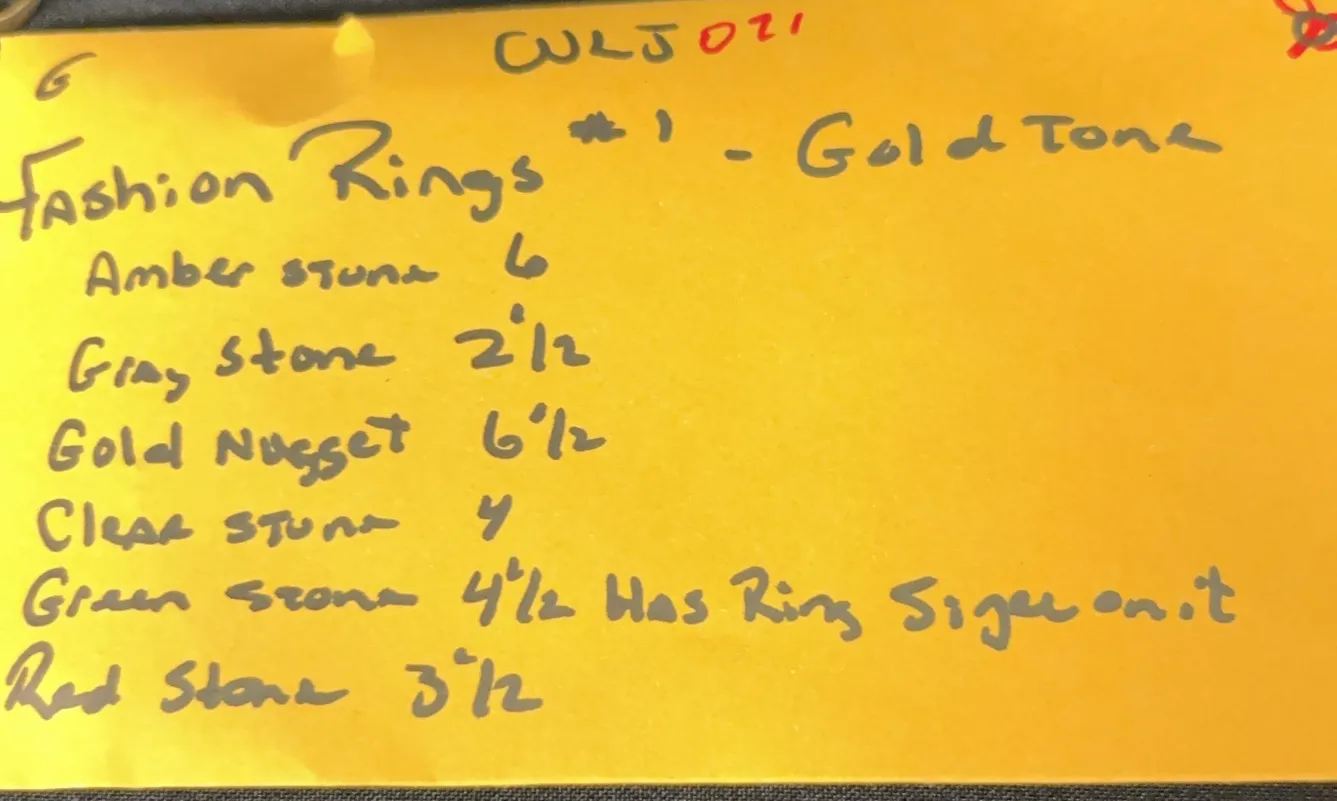 CWLJ 021
G
Fashion Rings #1 - Gold Tone
Amber Stone 6
Gray Stone 2 1/2
Gold Nugget 6 1/2
Clear Stone 4
Green Stone 4 1/2 Has Ring Sizer on it
Red Stone 3 1/2